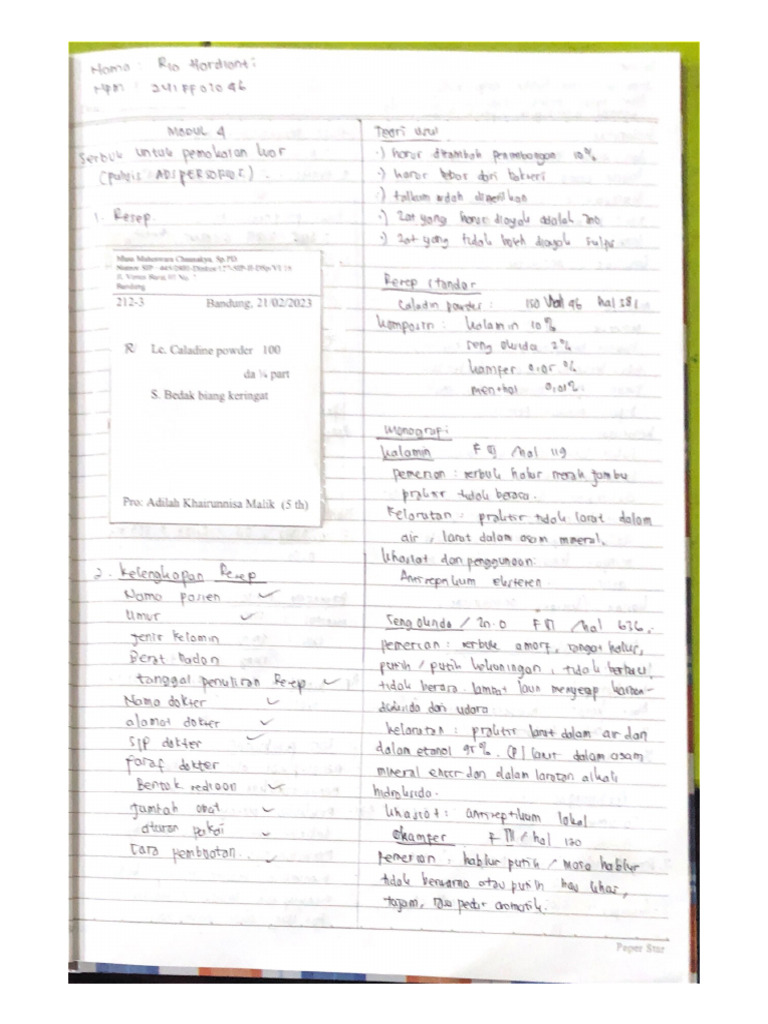 Nama : Rio Hardianti
NPM : 241FF07096
MODUL 4
Serbuk untuk pemakaian luar
(Pulvis ADSPERSORIUS).
1. Resep.
Bandung
212-3 Bandung, 21/02/2023
R/ Lc. Caladine powder 100
da ¼ part
S. Bedak biang keringat
Pro: Adilah Khairunnisa Malik (5 th)
2. Kelengkapan Resep
Nama pasien ✓
Umur ✓
Jenis kelamin
Berat badan
tanggal penulisan Resep ✓
Nama dokter ✓
alamat dokter ✓
SIP dokter ✓
Paraf dokter
Bentuk sediaan ✓
Jumlah obat ✓
aturan pakai ✓
Cara pembuatan. ✓
Teori usul
•) harus ditambah penimbangan 10%
•) harus bebas dari bakteri
•) talkum sudah disterilkan
•) Zat yang harus diayak adalah zno
•) zat yang tidak boleh diayak sulfur
Resep standar
Caladin powder : ISO Vol 46 hal 381
Komposisi : kalamin 10%
seng oksida 2%
kamfer 0,05 %
menthol 0,01%
Monografi
Kalamin F III / hal 119
pemerian : serbuk halus merah jambu
praktis tidak berasa.
Kelarutan : praktis tidak larut dalam
air, larut dalam asam mineral.
khasiat dan penggunaan:
Antiseptikum eksteren
Seng oksida / Zn.O F III / hal 636.
pemerian : serbuk amorf, sangat halus,
putih / putih kekuningan, tidak berbau,
tidak berasa. lambat laun menyerap karbon-
dioksida dari udara
kelarutan : praktis larut dalam air dan
dalam etanol 95% (P) larut dalam asam
mineral encer dan dalam larutan alkali
hidroksida.
khasiat : antiseptikum lokal
kamper F III / hal 130
Pemerian : hablur putih / masa hablur
tidak berwarna atau putih bau khas,
tajam, rasa pedas aromatik.
Paper Star